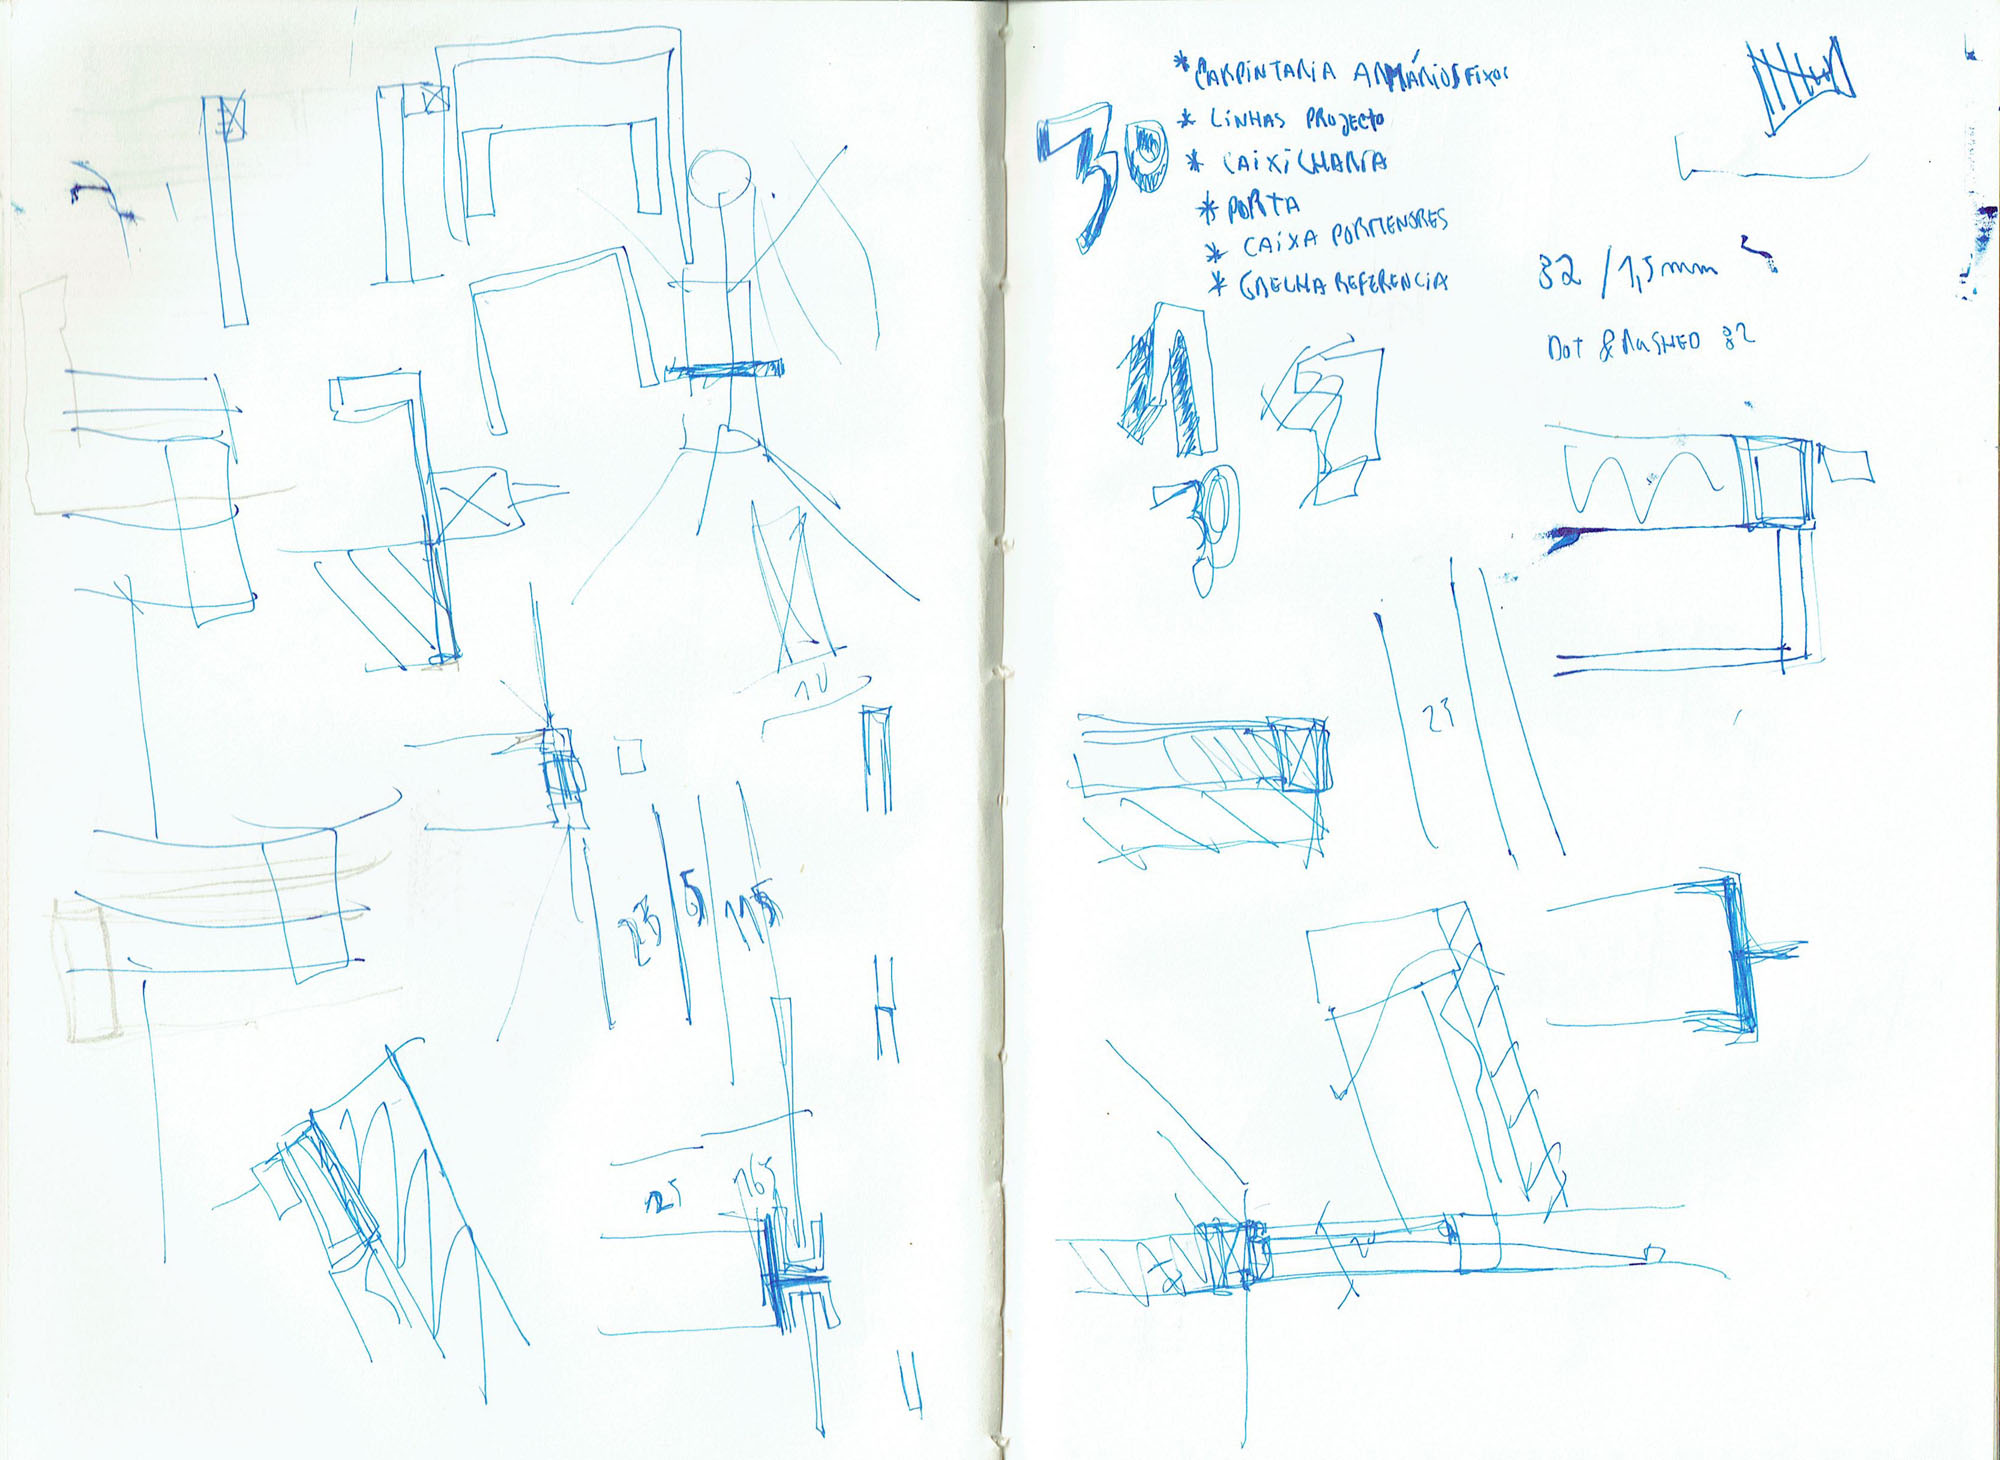 10
23
5
115
125
165
30
* CARPINTARIA ARMÁRIOS FIXOS
* LINHAS PROJECTO
* CAIXILHARIA
* PORTA
* CAIXA PORMENORES
* GRELHA REFERENCIA
32 / 1,5mm
DOT & DASHED 32
30
23